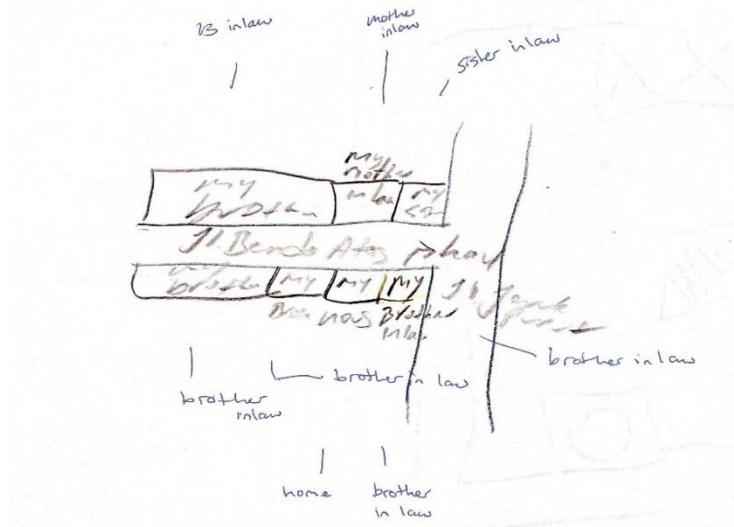 B inlaw
mother
inlaw
sister inlaw
my
mother
my
brother
inlaw
my
Jl. Bendo Atas
my
brother
my
my
my
Brother
inlaw
Jl
brother inlaw
brother in law
brother
inlaw
home
brother
in law